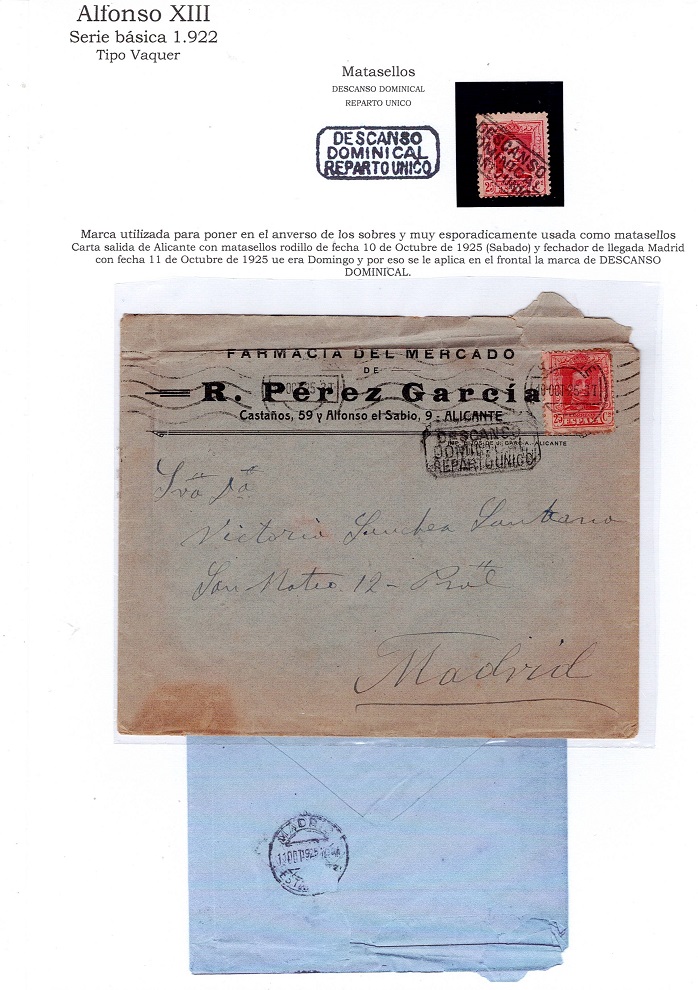 Alfonso XIII
Serie básica 1.922
Tipo Vaquer
Matasellos
DESCANSO DOMINICAL
REPARTO UNICO
DESCANSO
DOMINICAL
REPARTO UNICO
DESCANSO
25 Cs
Marca utilizada para poner en el anverso de los sobres y muy esporadicamente usada como matasellos
Carta salida de Alicante con matasellos rodillo de fecha 10 de Octubre de 1925 (Sabado) y fechador de llegada Madrid
con fecha 11 de Octubre de 1925 ue era Domingo y por eso se le aplica en el frontal la marca de DESCANSO
DOMINICAL.
FARMACIA DEL MERCADO
DE
R. Pérez García
Castaños, 59 y Alfonso el Sabio, 9 - ALICANTE
OCT 25
OCT 25
25 Cs
ESPAÑA
DE J. GARCIA. ALICANTE
DESCANS
DOMINICAL
REPARTO UNICO
Sra Da
Victoria Sanchez
San Mateo 12 - Pral
Madrid
MADRI
11 OCT 1925